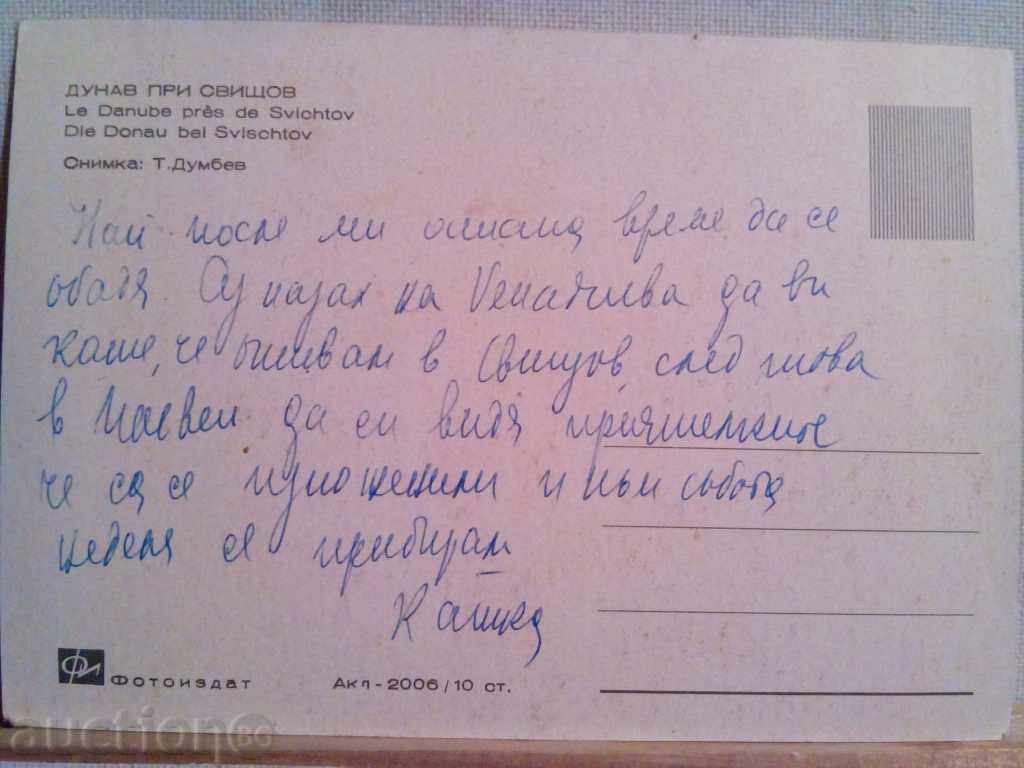 ДУНАВ ПРИ СВИЩОВ
Le Danube près de Svichtov
Die Donau bei Svischtov
Снимка: Т.Думбев
Най после ми остана време да се
обадя. на да ви
каже, че отивам в Свищов след това
в Плевен да си видя приятелките
че са се изпоженили и към събота
неделя се прибирам
Катя
Фотоиздат
Акл-2006/10 ст.
auction.BG